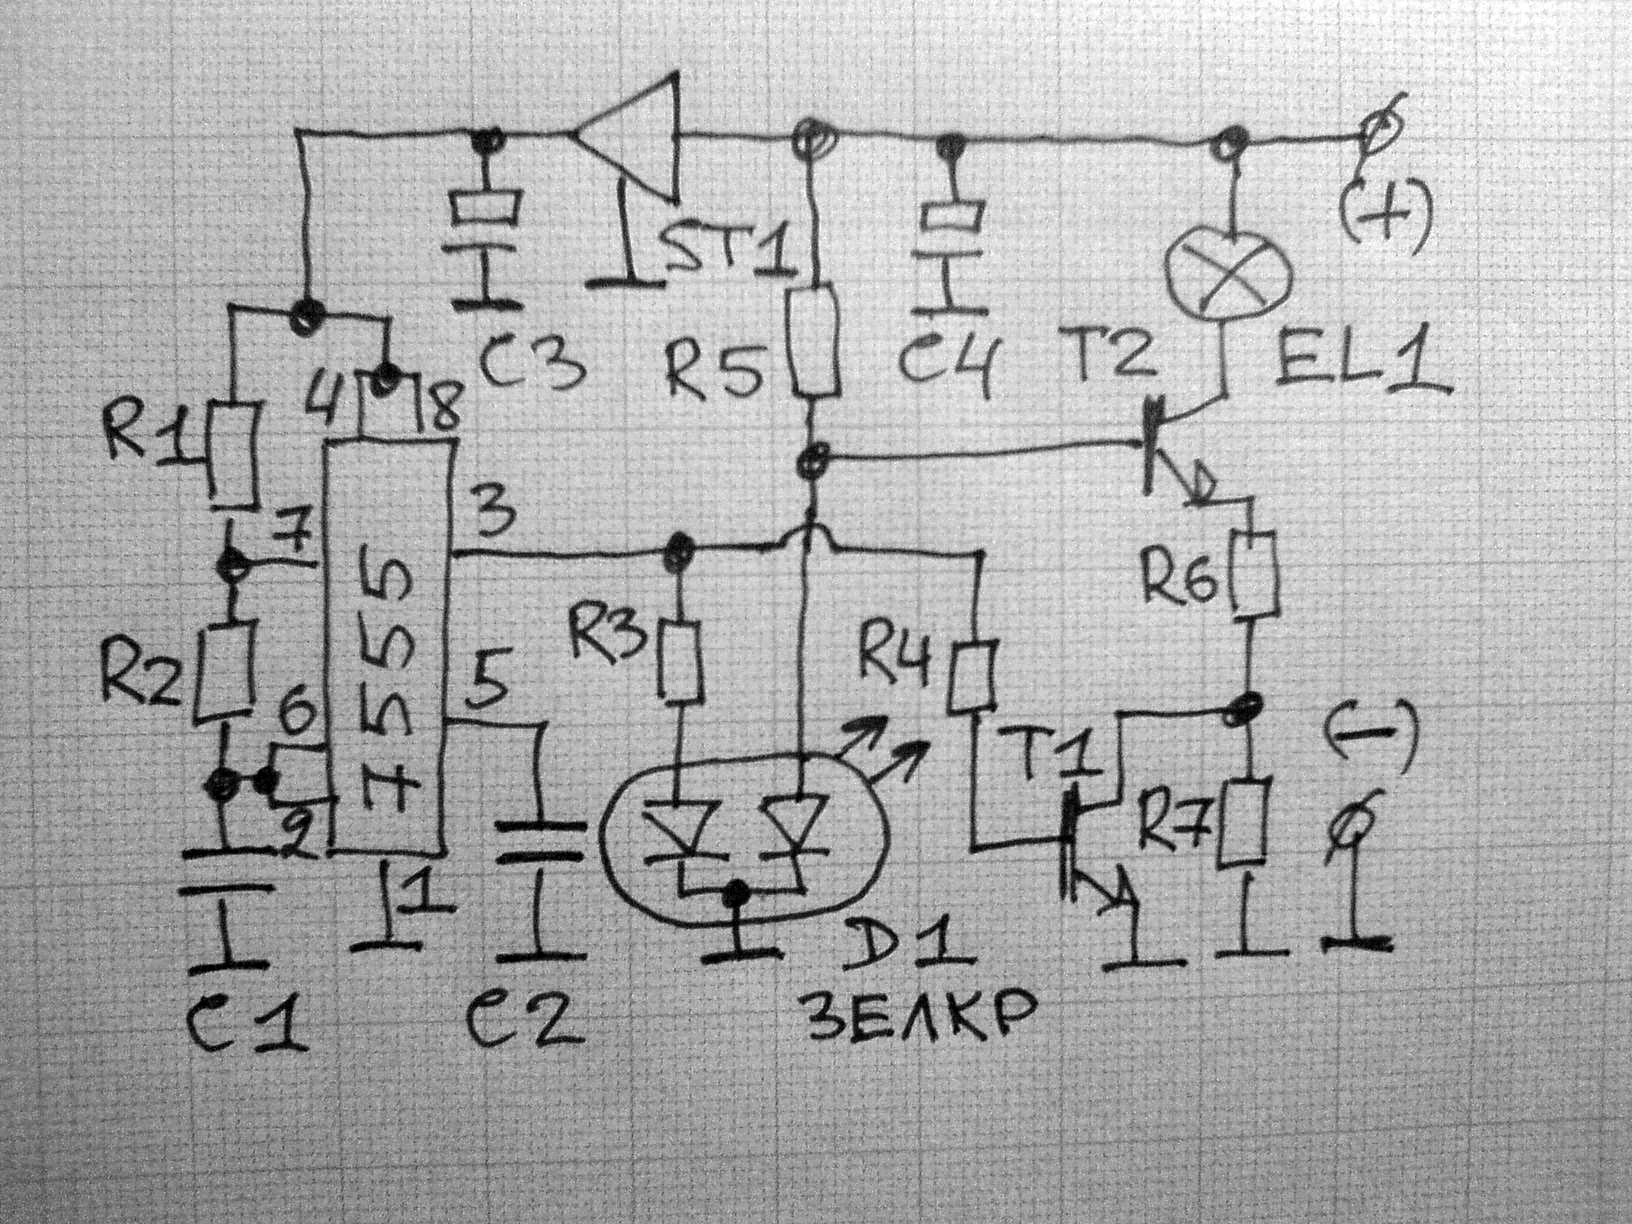 (+)
ST1
C3
R5
C4
T2
EL1
4
8
R1
7
3
R6
7555
R3
R4
R2
6
5
T1
(-)
2
R7
1
D1
C1
C2
ЗЕЛКР